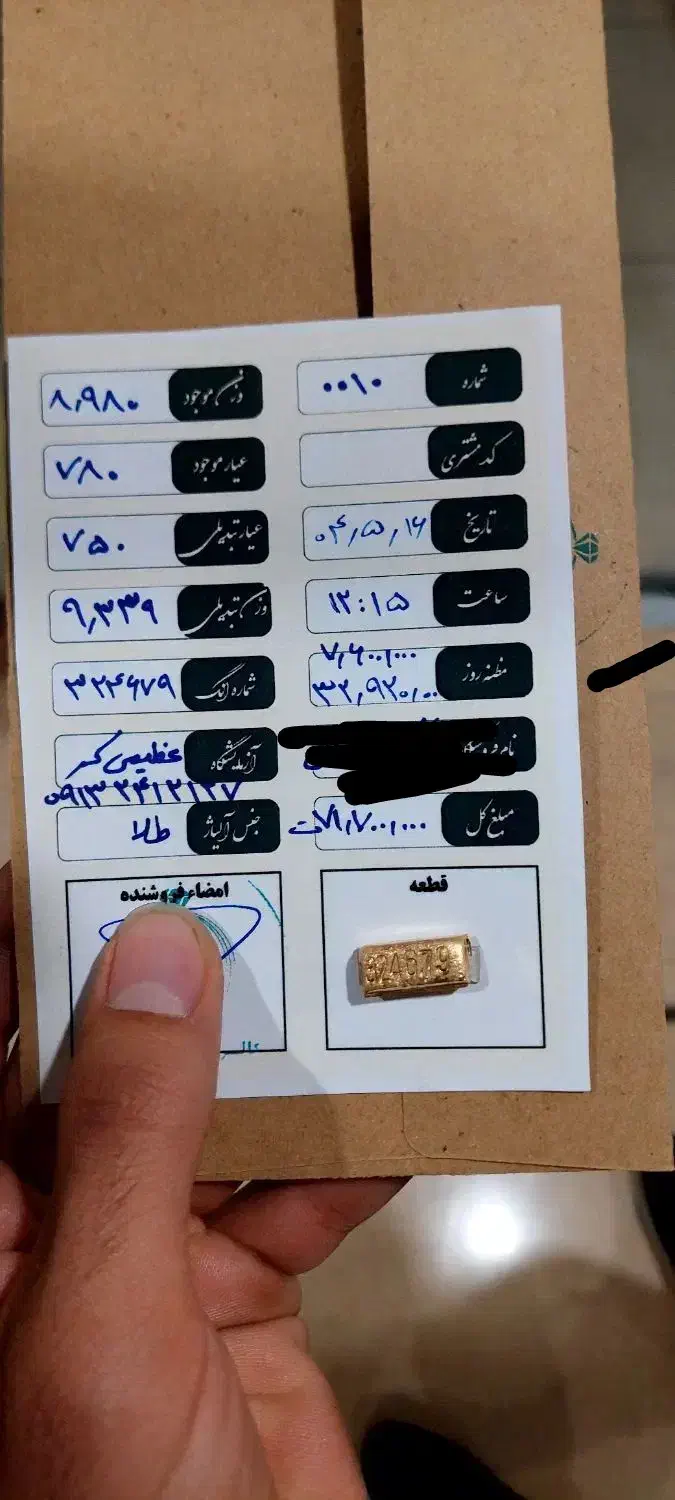 شماره ۰۰۱۰
وزن موجود ۸٫۹۸۰
کد مشتری
عیار موجود ۷۸۰
تاریخ ۰۴٫۵٫۱۶
عیار تبدیلی ۷۵۰
ساعت ۱۲:۱۵
وزن تبدیلی ۹٫۳۳۹
مظنه روز ۷٫۶۰۰٫۰۰۰
۳۲٫۹۲۰٫۰۰۰
شماره انگ ۳۲۴۶۷۹
آزمایشگاه
۰۹۱۳۲۴۱۲۱۲۷
مبلغ کل ۷۱٫۷۰۰٫۰۰۰ت
جنس آلیاژ طلا
قطعه
324679
امضاء فروشنده